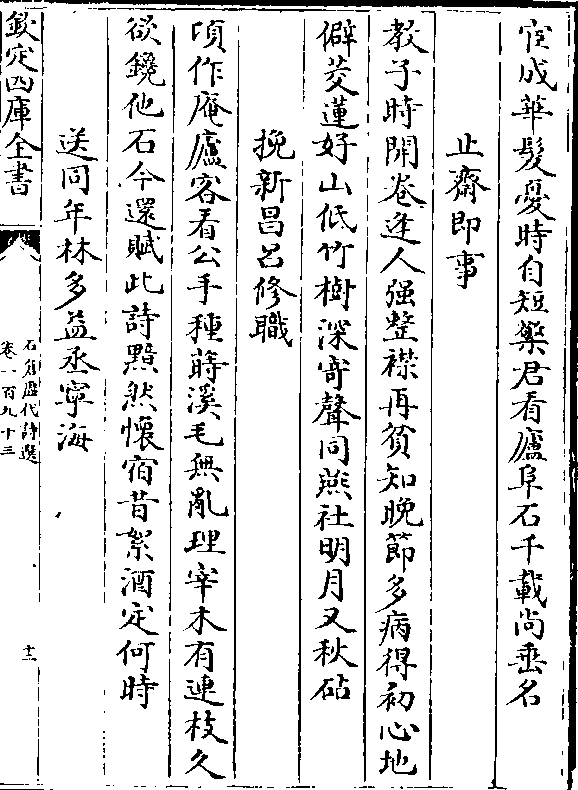 宦成華髮憂時自短檠君看廬阜石千載尚垂名
止齋即事
教子時開卷逢人强整襟再貧知晚節多病得初心地
僻茭蓮好山低竹樹深寄聲同燕社明月又秋砧
挽新昌呂修職
頃作庵廬客看公手種蒔溪毛無亂理宰木有連枝久
欲鑱他石今還賦此詩黯然懷宿昔絮酒定何時
送同年林多益丞寧海
欽定四庫全書
石倉歷代詩選
卷一百九十三
十二